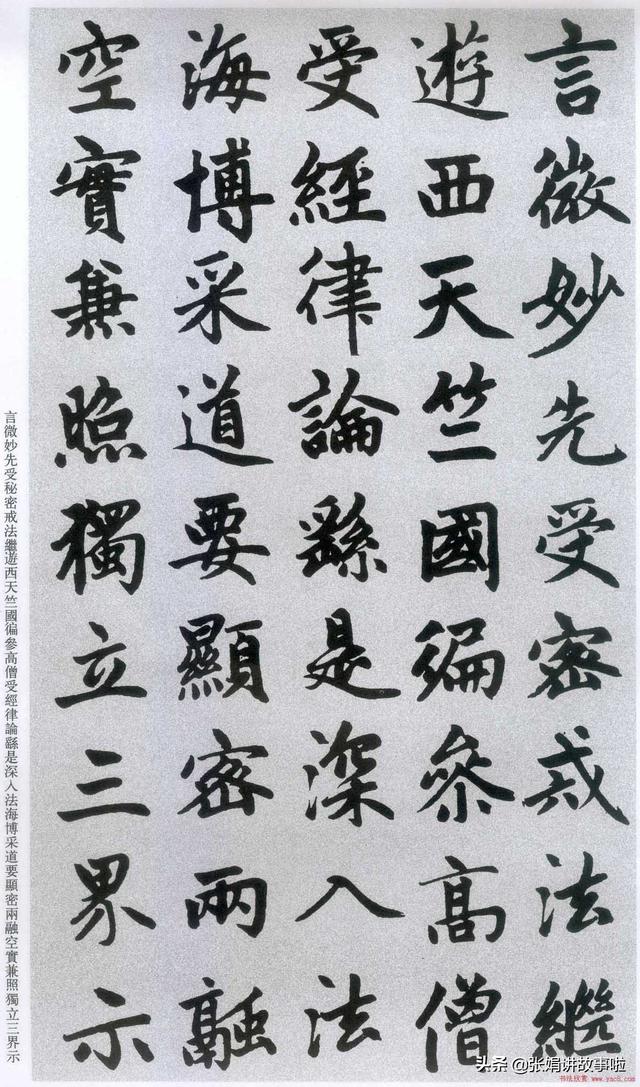 言微妙先受密戒法繼
遊西天竺國徧參高僧
受經律論繇是深入法
海博采道要顯密兩融
空實兼照獨立三界示
言微妙先受秘密戒法繼遊西天竺國徧參高僧受經律論繇是深入法海博采道要顯密兩融空實兼照獨立三界示
头条 @张娟讲故事啦
书法欣赏 www.yac8.com